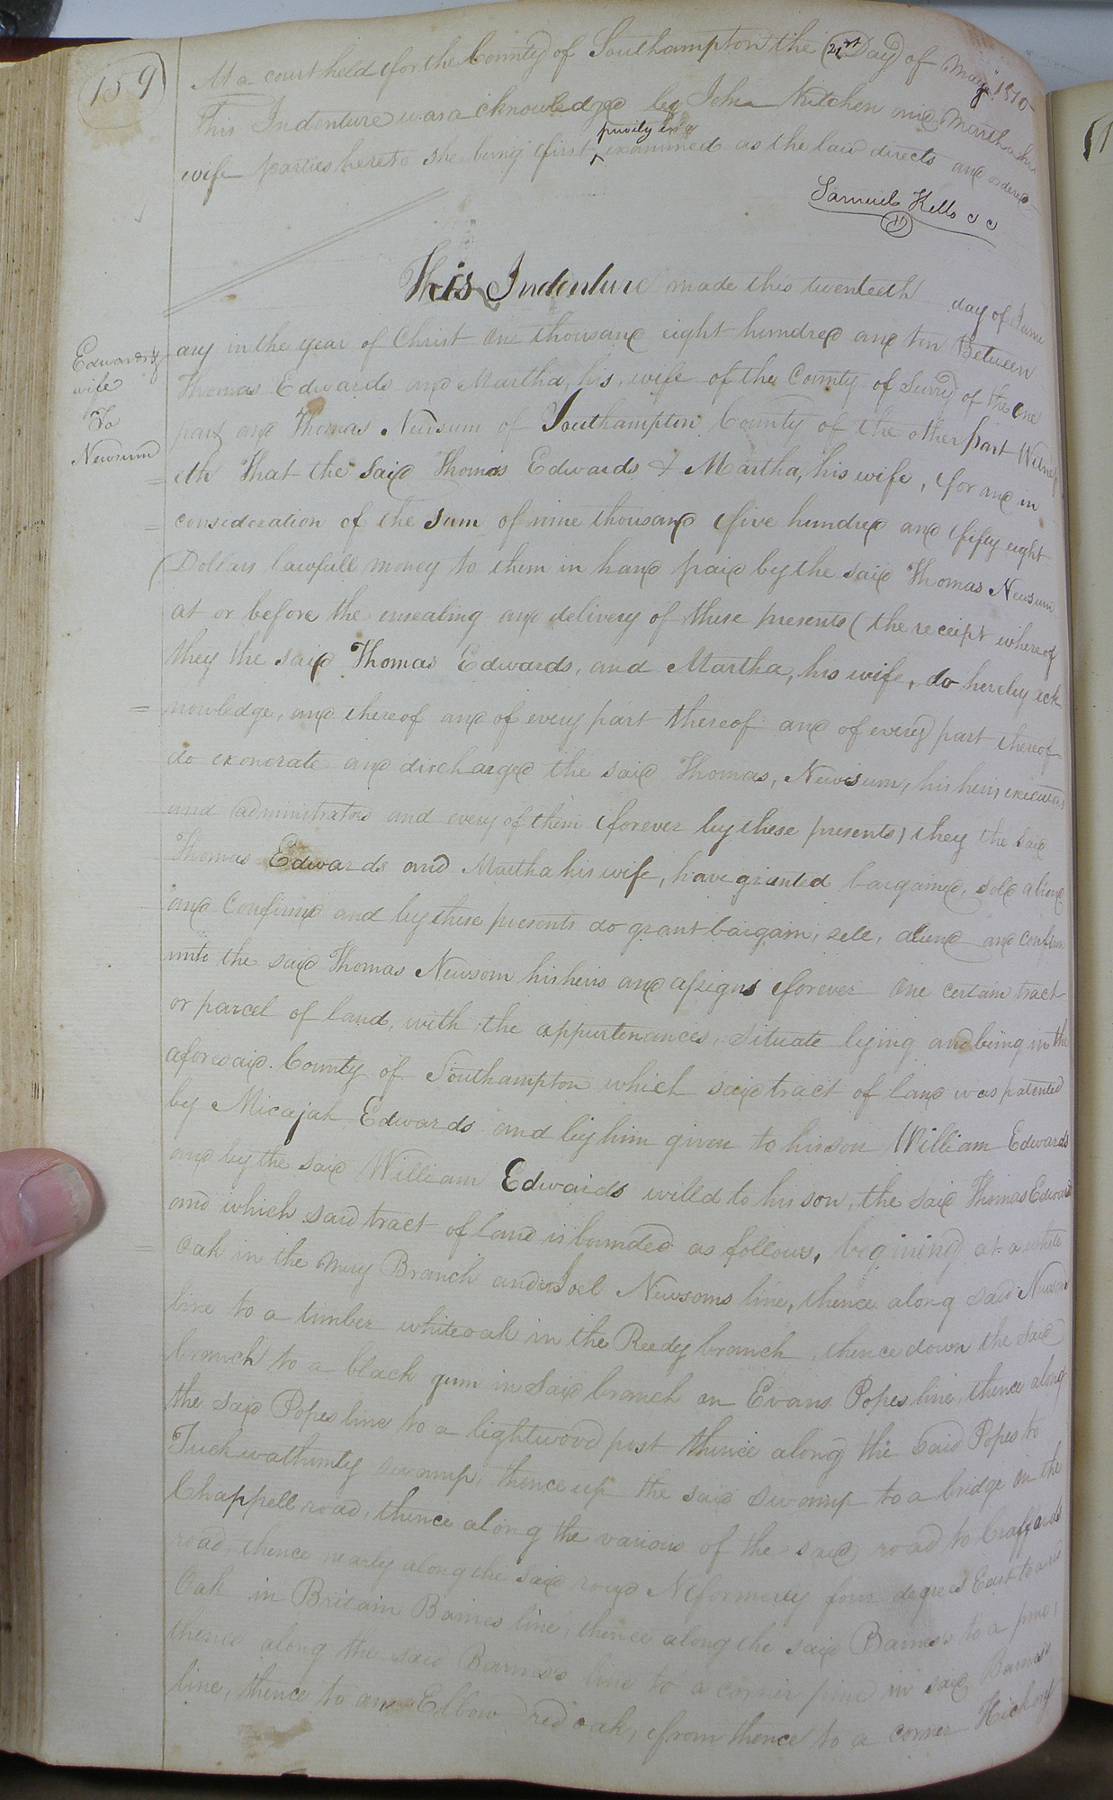 159
At a court held for the County of Southampton the 21st Day of May 1810
This Indenture was acknowledged by John Kitchen and Martha his
wife parties hereto she being first privily examined as the law directs and ordered
Samuel Kello CC
This Indenture made this twenteeth day of Janu
Edwards &
wife
To
Newsum
ary in the year of Christ One thousand eight hundred and ten Between
Thomas Edwards and Martha, his, wife of the County of Surry of the one
part and Thomas Newsum of Southampton County of the other part Witness
eth That the said Thomas Edwards & Martha, his wife, for and in
consideration of the sum of nine thousand five hundred and fifty eight
Dollars lawfull money to them in hand paid by the said Thomas Newsum
at or before the ensealing and delivery of these presents (the receipt whereof
they the said Thomas Edwards, and Martha, his wife, do hereby ack
nowledge, and thereof and of every part thereof and of every part thereof
do exonorate and discharged the said Thomas, Newsum, his heirs executors
and administrators and every of them forever by these presents) they the said
Thomas Edwards and Martha his wife, have granted bargained, sold aliend
and Confirmd and by these presents do grant bargain, sell, aliend and confirm
unto the said Thomas Newsom his heirs and assigns forever One certain tract
or parcel of land, with the appurtenances, situate lying and being in the
aforesaid County of Southampton which said tract of land was patented
by Micajah Edwards and by him given to his son William Edwards
and by the said William Edwards willd to his son, the said Thomas Edwards
and which said tract of land is bounded as follows, begining at a white
oak in the Miry Branch and Joel Newsoms line, thence along said Newsoms
line to a timber white oak in the Reedy branch, thence down the said
branch to a black gum in said branch on Evans Popes line, thence along
the said Popes line to a lightwood post thence along the said Popes to
swamp, thence up the said swamp to a bridge on the
Chappell road, thence along the various of the said road to Craffords
road, thence nearly along the said road N formerly four degrees East to a
Oak in Britain Barnes line, thence along the said Barness to a pine,
thence along the said Barness line to a corner pine in said Barness
line, thence to an Elbow red oak, from thence to a corner Hickory